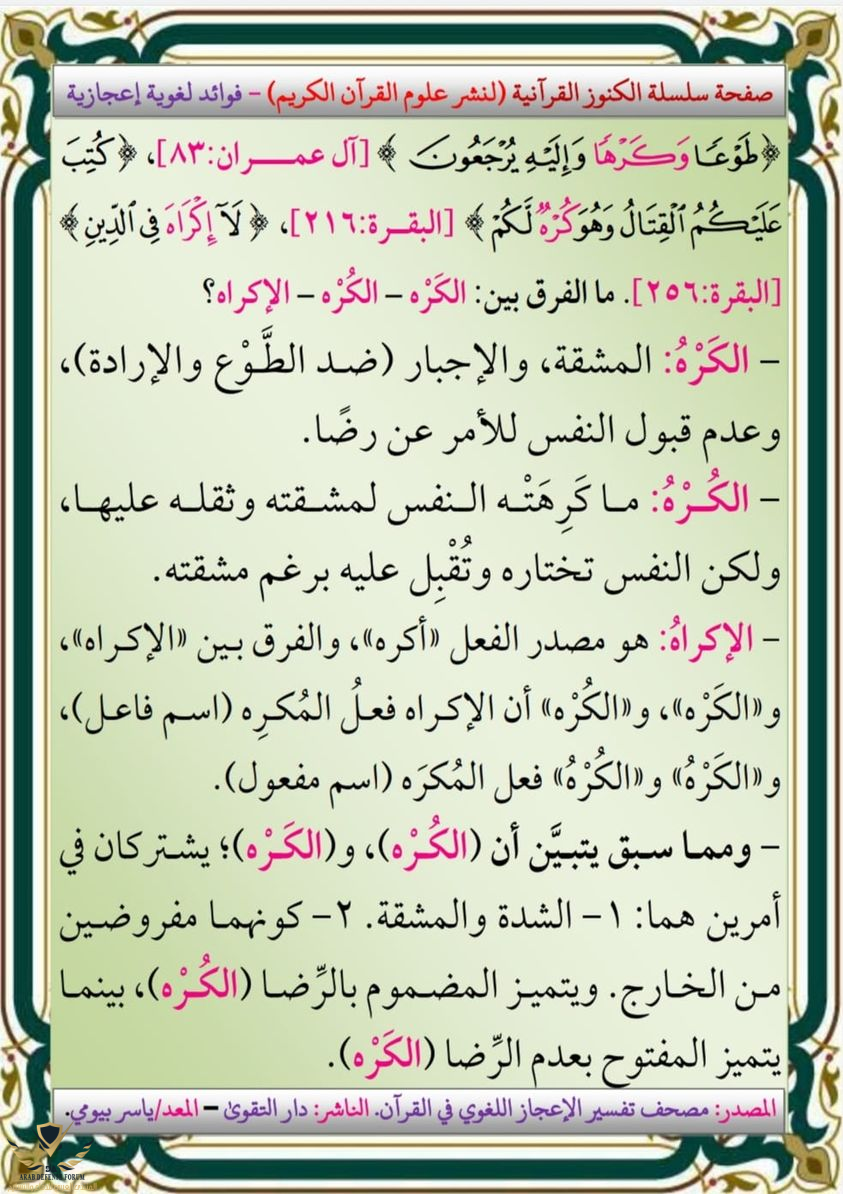 صفحة سلسلة الكنوز القرآنية (لنشر علوم القرآن الكريم) - فوائد لغوية إعجازية
﴿طَوْعًا وَكَرْهًا وَإِلَيْهِ يُرْجَعُونَ﴾ [آل عمــــران:٨٣]، ﴿كُتِبَ
عَلَيْكُمُ ٱلْقِتَالُ وَهُوَ كُرْهٌ لَّكُمْ﴾ [البقــرة:٢١٦]، ﴿لَآ إِكْرَاهَ فِي ٱلدِّينِ﴾
[البقرة:٢٥٦]. ما الفرق بين: الكَرْه – الكُرْه – الإكراه؟
– الكَرْهُ: المشقة، والإجبار (ضد الطَّوْع والإرادة)،
وعدم قبول النفس للأمر عن رضًا.
– الكُرْهُ: ما كَرِهَتْه النفس لمشقته وثقله عليها،
ولكن النفس تختاره وتُقْبِل عليه برغم مشقته.
– الإكراهُ: هو مصدر الفعل «أكره»، والفرق بين «الإكراه»،
و«الكَرْه»، و«الكُرْه» أن الإكراه فعلُ المُكرِه (اسم فاعل)،
و«الكَرْهُ» و«الكُرْهُ» فعل المُكرَه (اسم مفعول).
– ومما سبق يتبيَّن أن (الكُرْه)، و(الكَرْه)؛ يشتركان في
أمرين هما: ١– الشدة والمشقة. ٢– كونهما مفروضين
من الخارج. ويتميز المضموم بالرِّضا (الكُرْه)، بينما
يتميز المفتوح بعدم الرِّضا (الكَرْه).
المصدر: مصحف تفسير الإعجاز اللغوي في القرآن. الناشر: دار التقوىٰ – المعد/ياسر بيومي.
ARAB DEFENSE FORUM